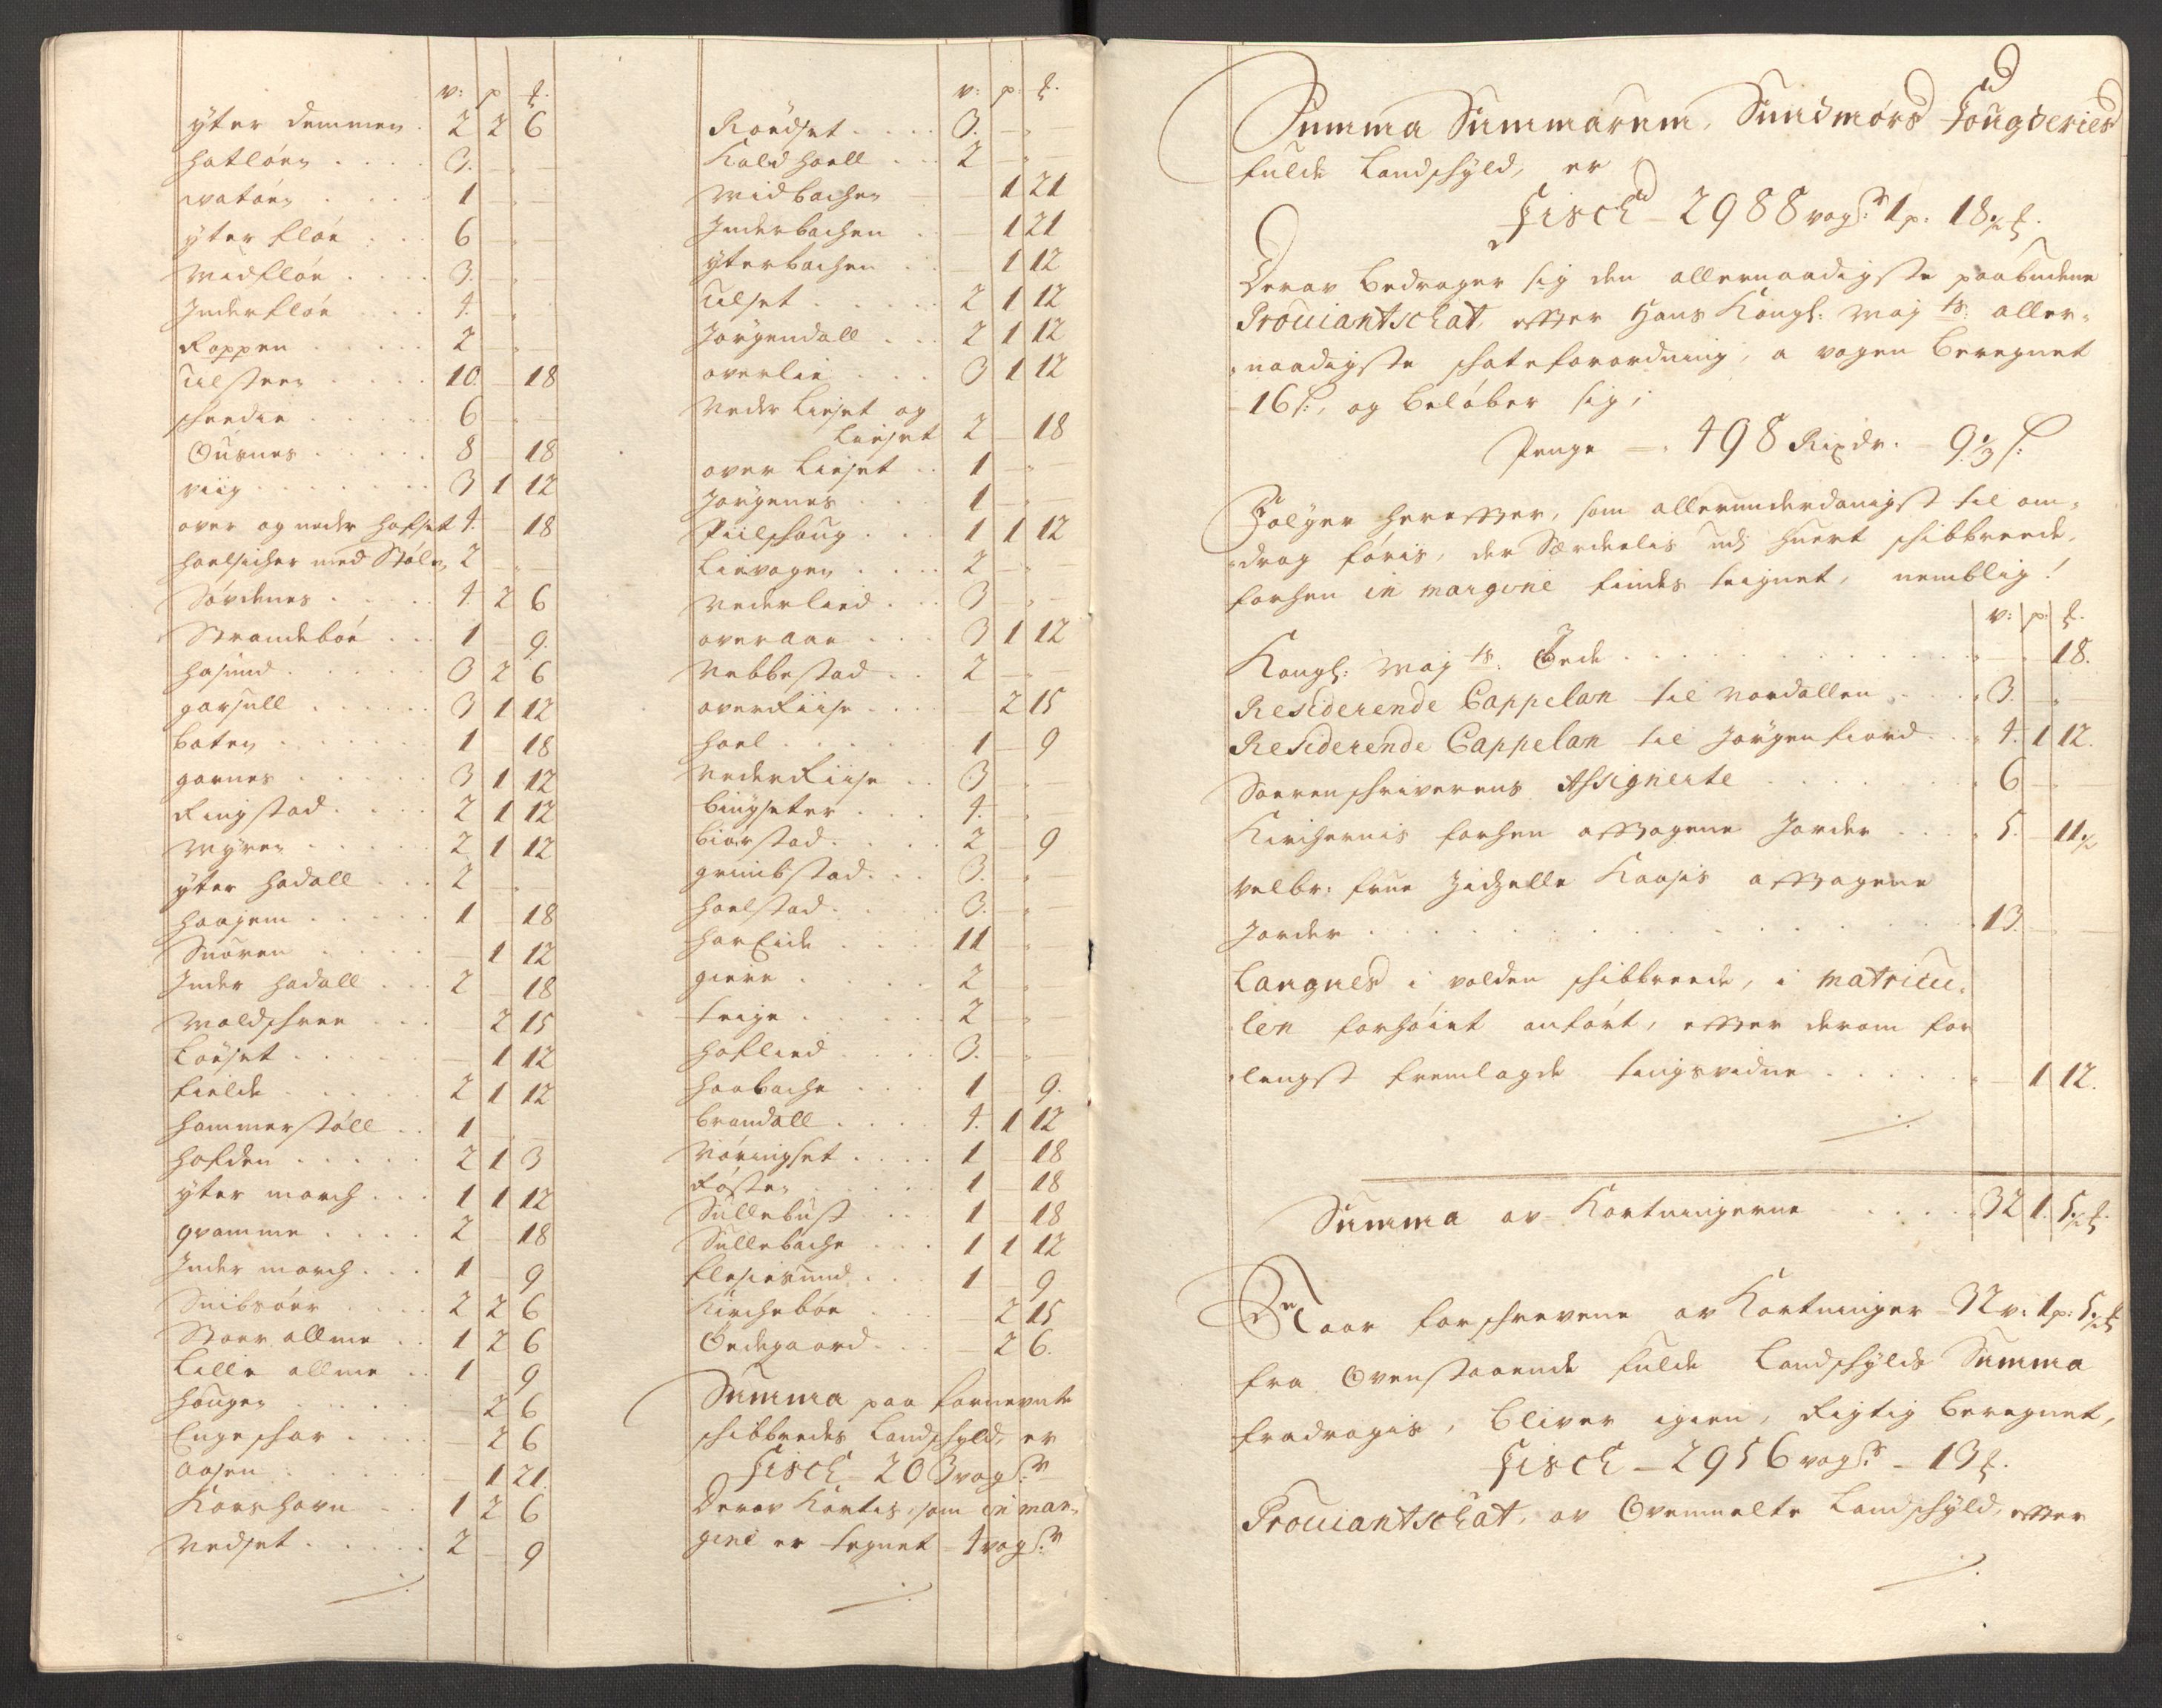 v: p ℔.
yter demmen . 2 2 6
hatlöen . . . . 3. - -
watöen . . . . 1 - -
yter flöe . . . 6 - -
Midflöe . . . . 3. - -
Inderflöe . . . 4. - -
Roppen . . . . . 2 - -
Ulsteen . . . . 10. - 18
schredie . . . . . 6 - -
Ousnes . . . . . 8 - 18
viig . . . . . . . 3 1 12
over og neder hafset 4. - 18
haelsicher med Stöle 2 - -
Sövdenes . . . . 4. 2 6
Strandeböe . . . 1 - 9.
hasund . . . . . 3 2 6
garsull . . . . . 3 1 12
baten . . . . . . 1 - 18
garnes . . . . . 3 1 12
Ringstad . . . . 2 1 12
Myren . . . . . 2 1 12
yter hadall . . . 2 - -
haajem . . . . . 1 - 18
Snören . . . . . - 1 12
Inder hadall . . . 2 - 18
Moldschree . . . - 2 15
Löeset . . . . . - 1 12
fielde . . . . . 2 1 12
hammerstöll . . 1 - -
hafden . . . . . 2 1 3
yter march . . . 1 1 12
qvamme . . . . 2 - 18
Inder march . . . 1 - 9
Snibsöer . . . . 2 2 6
Stoer allme . . 1 2 6
Lille allme . . 1 - 9
hougen . . . . . - 2 6
Engeschar . . . . - 2 6
Aasen . . . . . . - 1 21.
Korshavn . . 1 2 6
Nedset . . . . . 2 - 9
v: p: ℔.
Roedset . . . . 3. - -
Kaldhoell . . . 2 - -
Midbachen - 1 21
Inderbachen . - 1 21
yterbachen . . 1 12
Ulset . . . . . 2 1 12
Jorgendall . . . 2 1 12
overlie . . . . 3 1 12
Neder Lieset og
Lieset 2 - 18
over Lieset . . 1 - -
Jorgenes . . . 1 - -
Piilschoug . . . 1 1 12
Lievagen . . . . 2 - -
Nederlied . . . 3 - -
overaae . . . 3 1 12
Nebbestad . . . 2 - -
overRiise . . . . 2 15
hoel . . . . . . 1 - 9
NederRiise . . 3 - -
bingseter . . . 4. - -
biörstad . . . . 2 - 9
grimbstad . . . 3. - -
hoelstad . . . . 3. - -
harEide . . . . 11 - -
giere . . . . . 2 - -
teige . . . . . 2 - -
haflied . . . . 3. - -
haabache . . . 1 - 9.
brandall . . . . 4. 1 12
Nöringset . . . . 1 - 18
Röste . . . . . 1 - 18
Sullebust . . . 1 - 18
Sullebache . . . 1 1 12
flasiesund . . . 1 - 9
Kircheböe . . - 2 15
Ödegaard . . . - 2 6.
Summa paa fornevnte
schibbredes Landschyld, er
Fisch - 203 vog&#x0303;r
Derav Kortis, som in mar-
gine er tegnet - 4 vogr
Summa Summarum, Sundmörs Fougderies
fulde Landschyld, er
Fisch - 2988 vogr 1 p: 18½ ℔.
Derav bedrager sig den allernaadigste paabudene
Proviantschat, effter Hans Kongl: Maj ts: aller-
naadigste schateforordning, a vogen beregnet
16 s:, og belöber sig;
Penge - 498 Rixdr. - 9⅓ s:
Fölger hereffter, som allerunderdanigst til om-
drag föris, der Særdeelis udj huert schibbreede,
forhen in margine findes teignet, nemblig!
v: p: ℔.
Kongl: Maj ts: Öede . . . . . . - - 18.
Residerende Cappelan til Nordallen . . . 3. - -
Residerende Cappelan til Jörgenfiord . . 4. 1 12.
Sorenschriverens Assignerte . . . . . 6 - -
Kirchernis forhen afftagene Jorder . . . 5. - 11½
velbr: frue Zidzelle Kaasis afftagene
Jorder . . . . . . . . . . 13. - -
Langnes i volden schibbreede, i matricu-
len forhöiet anfört, effter derom for
lengst fremlagde tingsvidne . . . . . - 1 12.
Summa av Kortningerne . . . . 32 1. 5½ ℔.
Naar forschrevene av Kortninger 32 v: 1 p: 5½ ℔
fra Ovenstaaende fulde Landschylds Summa
fradragis, bliver igien, Rigtig beregnet,
Fisch - 2956 vogr - 13 ℔.
Proviantschat, av Ovenmelte Landschyld, effter